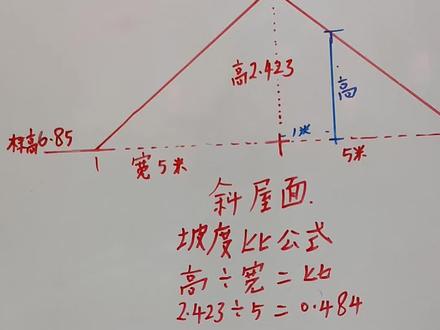 高2.423
高
标高6.85
1米
宽5米
5米
斜屋面.
坡度比公式
高÷宽=比
2.423÷5=0.484